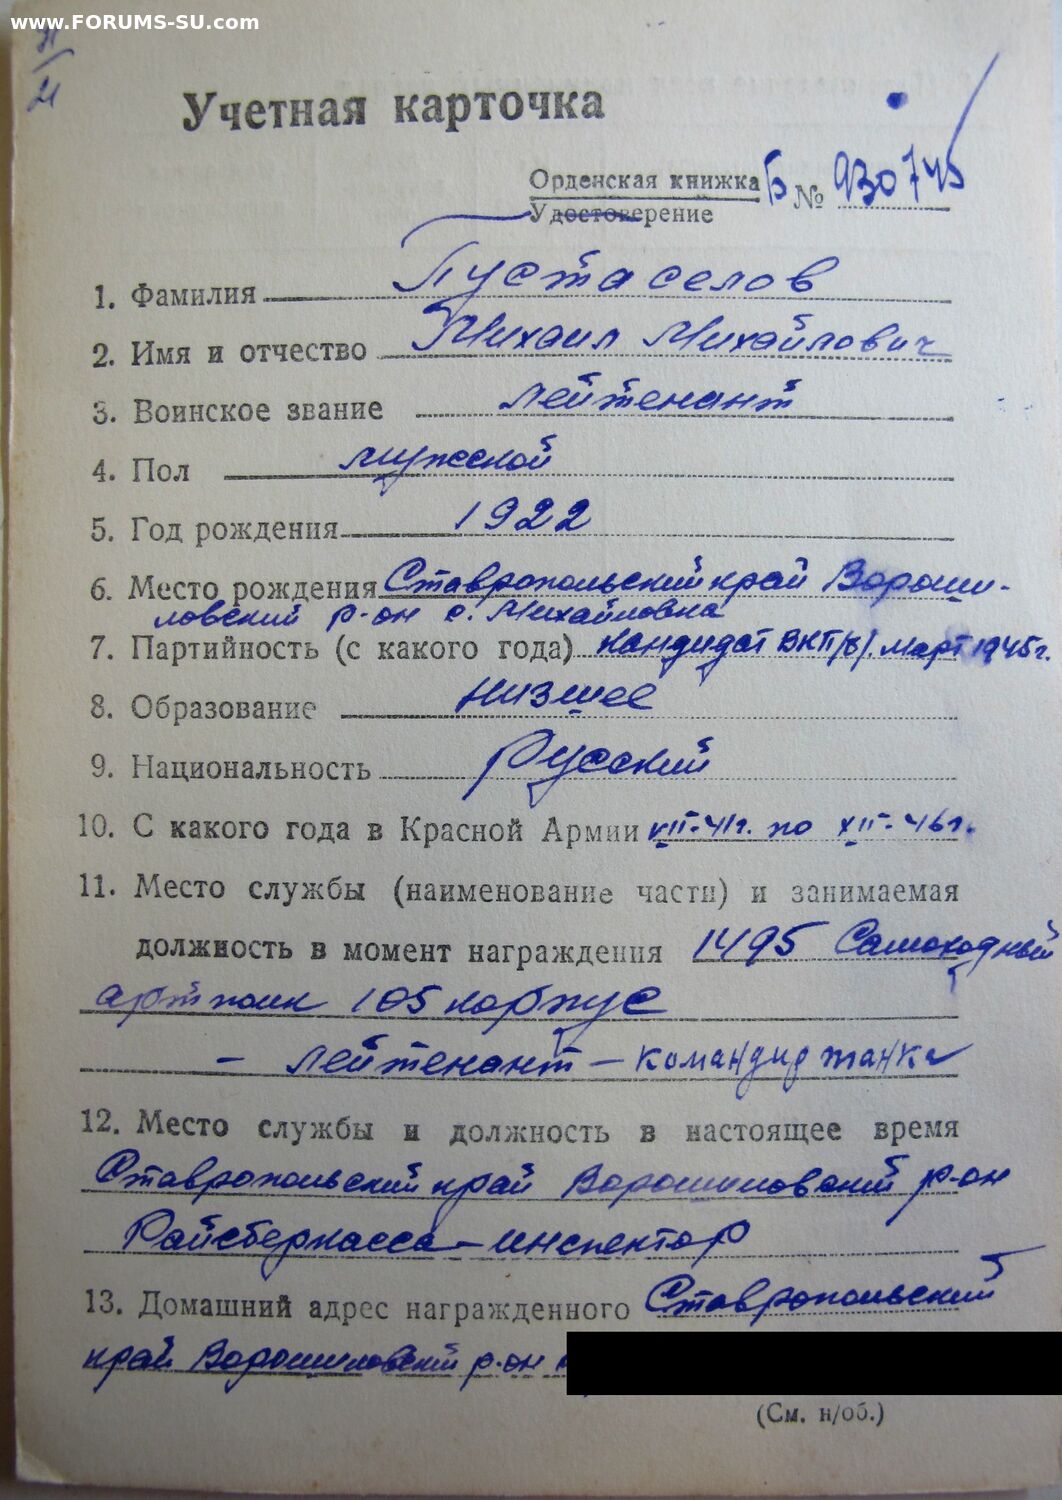 www.FORUMS-SU.com
21
Учетная карточка
Орденская книжка Б № 930745
Удостоверение
1. Фамилия Пустаселов
2. Имя и отчество Михаил Михайлович
3. Воинское звание лейтенант
4. Пол мужской
5. Год рождения 1922
6. Место рождения Ставропольский край Вороши-
ловский р-он с. Михайловка
7. Партийность (с какого года) кандидат ВКП/б/. март 1945г.
8. Образование низшее
9. Национальность Русский
10. С какого года в Красной Армии VII-41г. по XII-46г.
11. Место службы (наименование части) и занимаемая
должность в момент награждения 1495 Самоходный
артполк 105 корпус
– лейтенант – командир танка
12. Место службы и должность в настоящее время
Ставропольский край Ворошиловский р-он
Райсберкасса – инспектор
13. Домашний адрес награжденного Ставропольский
край Ворошиловский р-он
(См. н/об.)